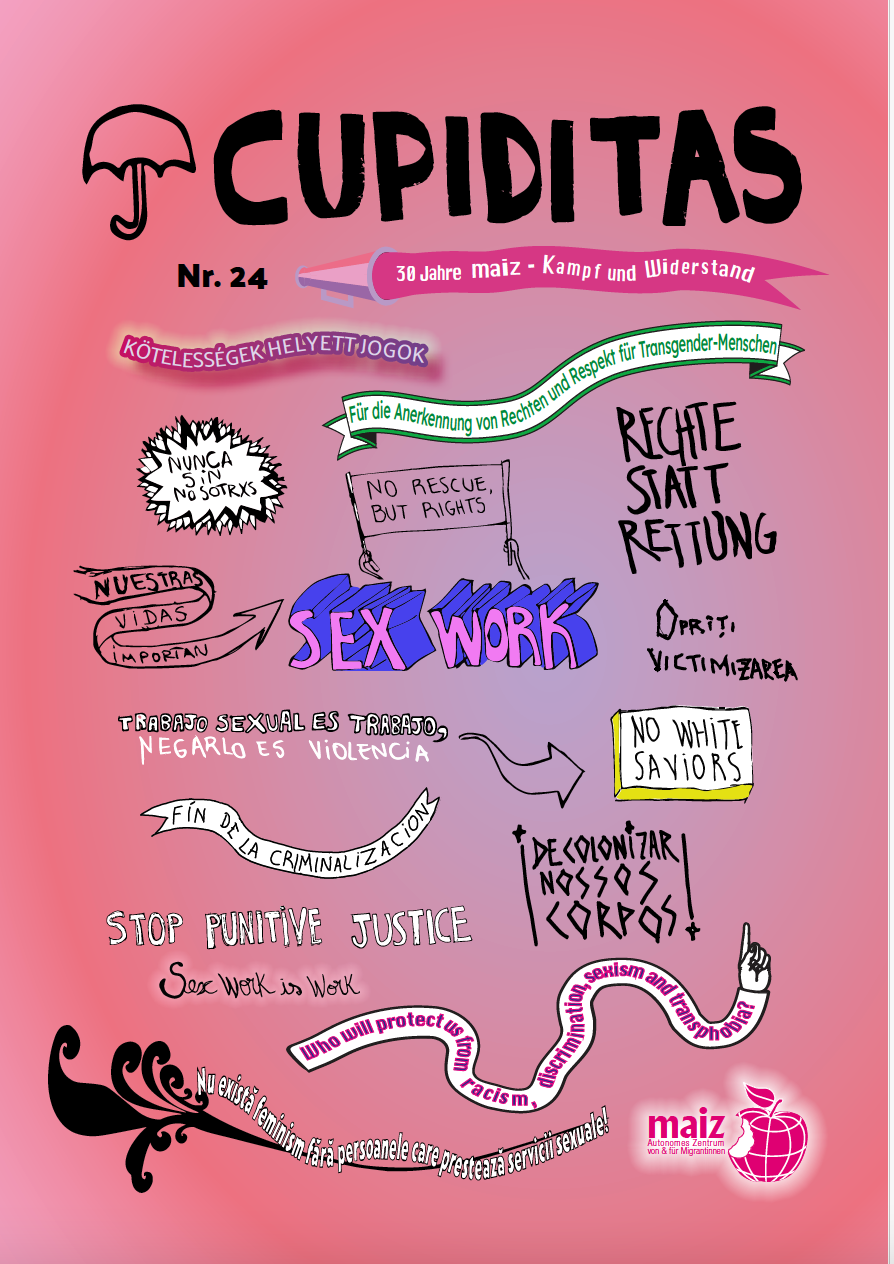 CUPIDITAS
Nr. 24
30 Jahre maiz - Kampf und Widerstand
KÖTELESSÉGEK HELYETT JOGOK
Für die Anerkennung von Rechten und Respekt für Transgender-Menschen
NUNCA
SIN
NOSOTRXS
NO RESCUE,
BUT RIGHTS
RECHTE
STATT
RETTUNG
NUESTRAS
VIDAS
IMPORTAN
SEX WORK
OPRIȚI
VICTIMIZAREA
TRABAJO SEXUAL ES TRABAJO,
NEGARLO ES VIOLENCIA
NO WHITE
SAVIORS
FÍN DE LA CRIMINALIZACION
DECOLONIZAR
NOSSOS
CORPOS
STOP PUNITIVE JUSTICE
Sex Work is Work
Who will protect us from racism, discrimination, sexism and transphobia?
Nu există feminism fără persoanele care prestează servicii sexuale!
maiz
Autonomes Zentrum
von & für Migrantinnen